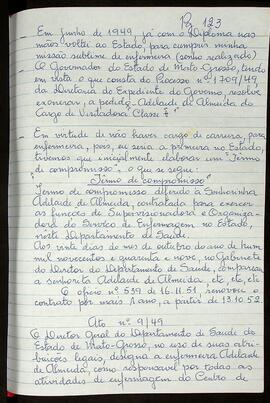 Pg 123
Em Junho de 1949, já com o Diploma nas
mãos voltei ao Estado, para cumprir minha
missão sublime de enfermeira (sonho realizado)
O Governador do Estado de Mato-Grosso, tendo
em vista o que consta do Processo nº 1709/49
da Diretoria do Expediente do Governo, resolve
exonerar, a pedido Adelaide de Almeida do
Cargo de Visitadora Classe F"
Em virtude de não haver cargo de carreira, para
enfermeira, pois, eu seria a primeira no Estado,
tivemos que inicialmente elaborar um "Termo
de compromisso", o que se segue:
"Termo de compromisso"
Termo de compromisso deferido à Senhorinha
Adelaide de Almeida, contratada para exercer
as funções de Supervisionadora e Organiza-
dora do Serviço de Enfermagem no Estado,
neste Departamento de Saúde.
Aos vinte dias do mes de outubro do ano de hum
mil novecentos e quarenta e nove, no Gabinete
do Diretor do Departamento de Saúde, compareceu
a senhorita Adelaide de Almeida, etc, etc, etc
O oficio nº 539 de 16.11.51, renovou o
contrato por mais 1 ano, a partir de 13.10.52.
Ato nº 9/49
O Diretor Geral do Departamento de Saúde do
Estado de Mato-Grosso, no uso de suas atri-
buições legais, designa a enfermeira Adelaide
de Almeida, como responsável por todas as
atividades de enfermagem do Centro de